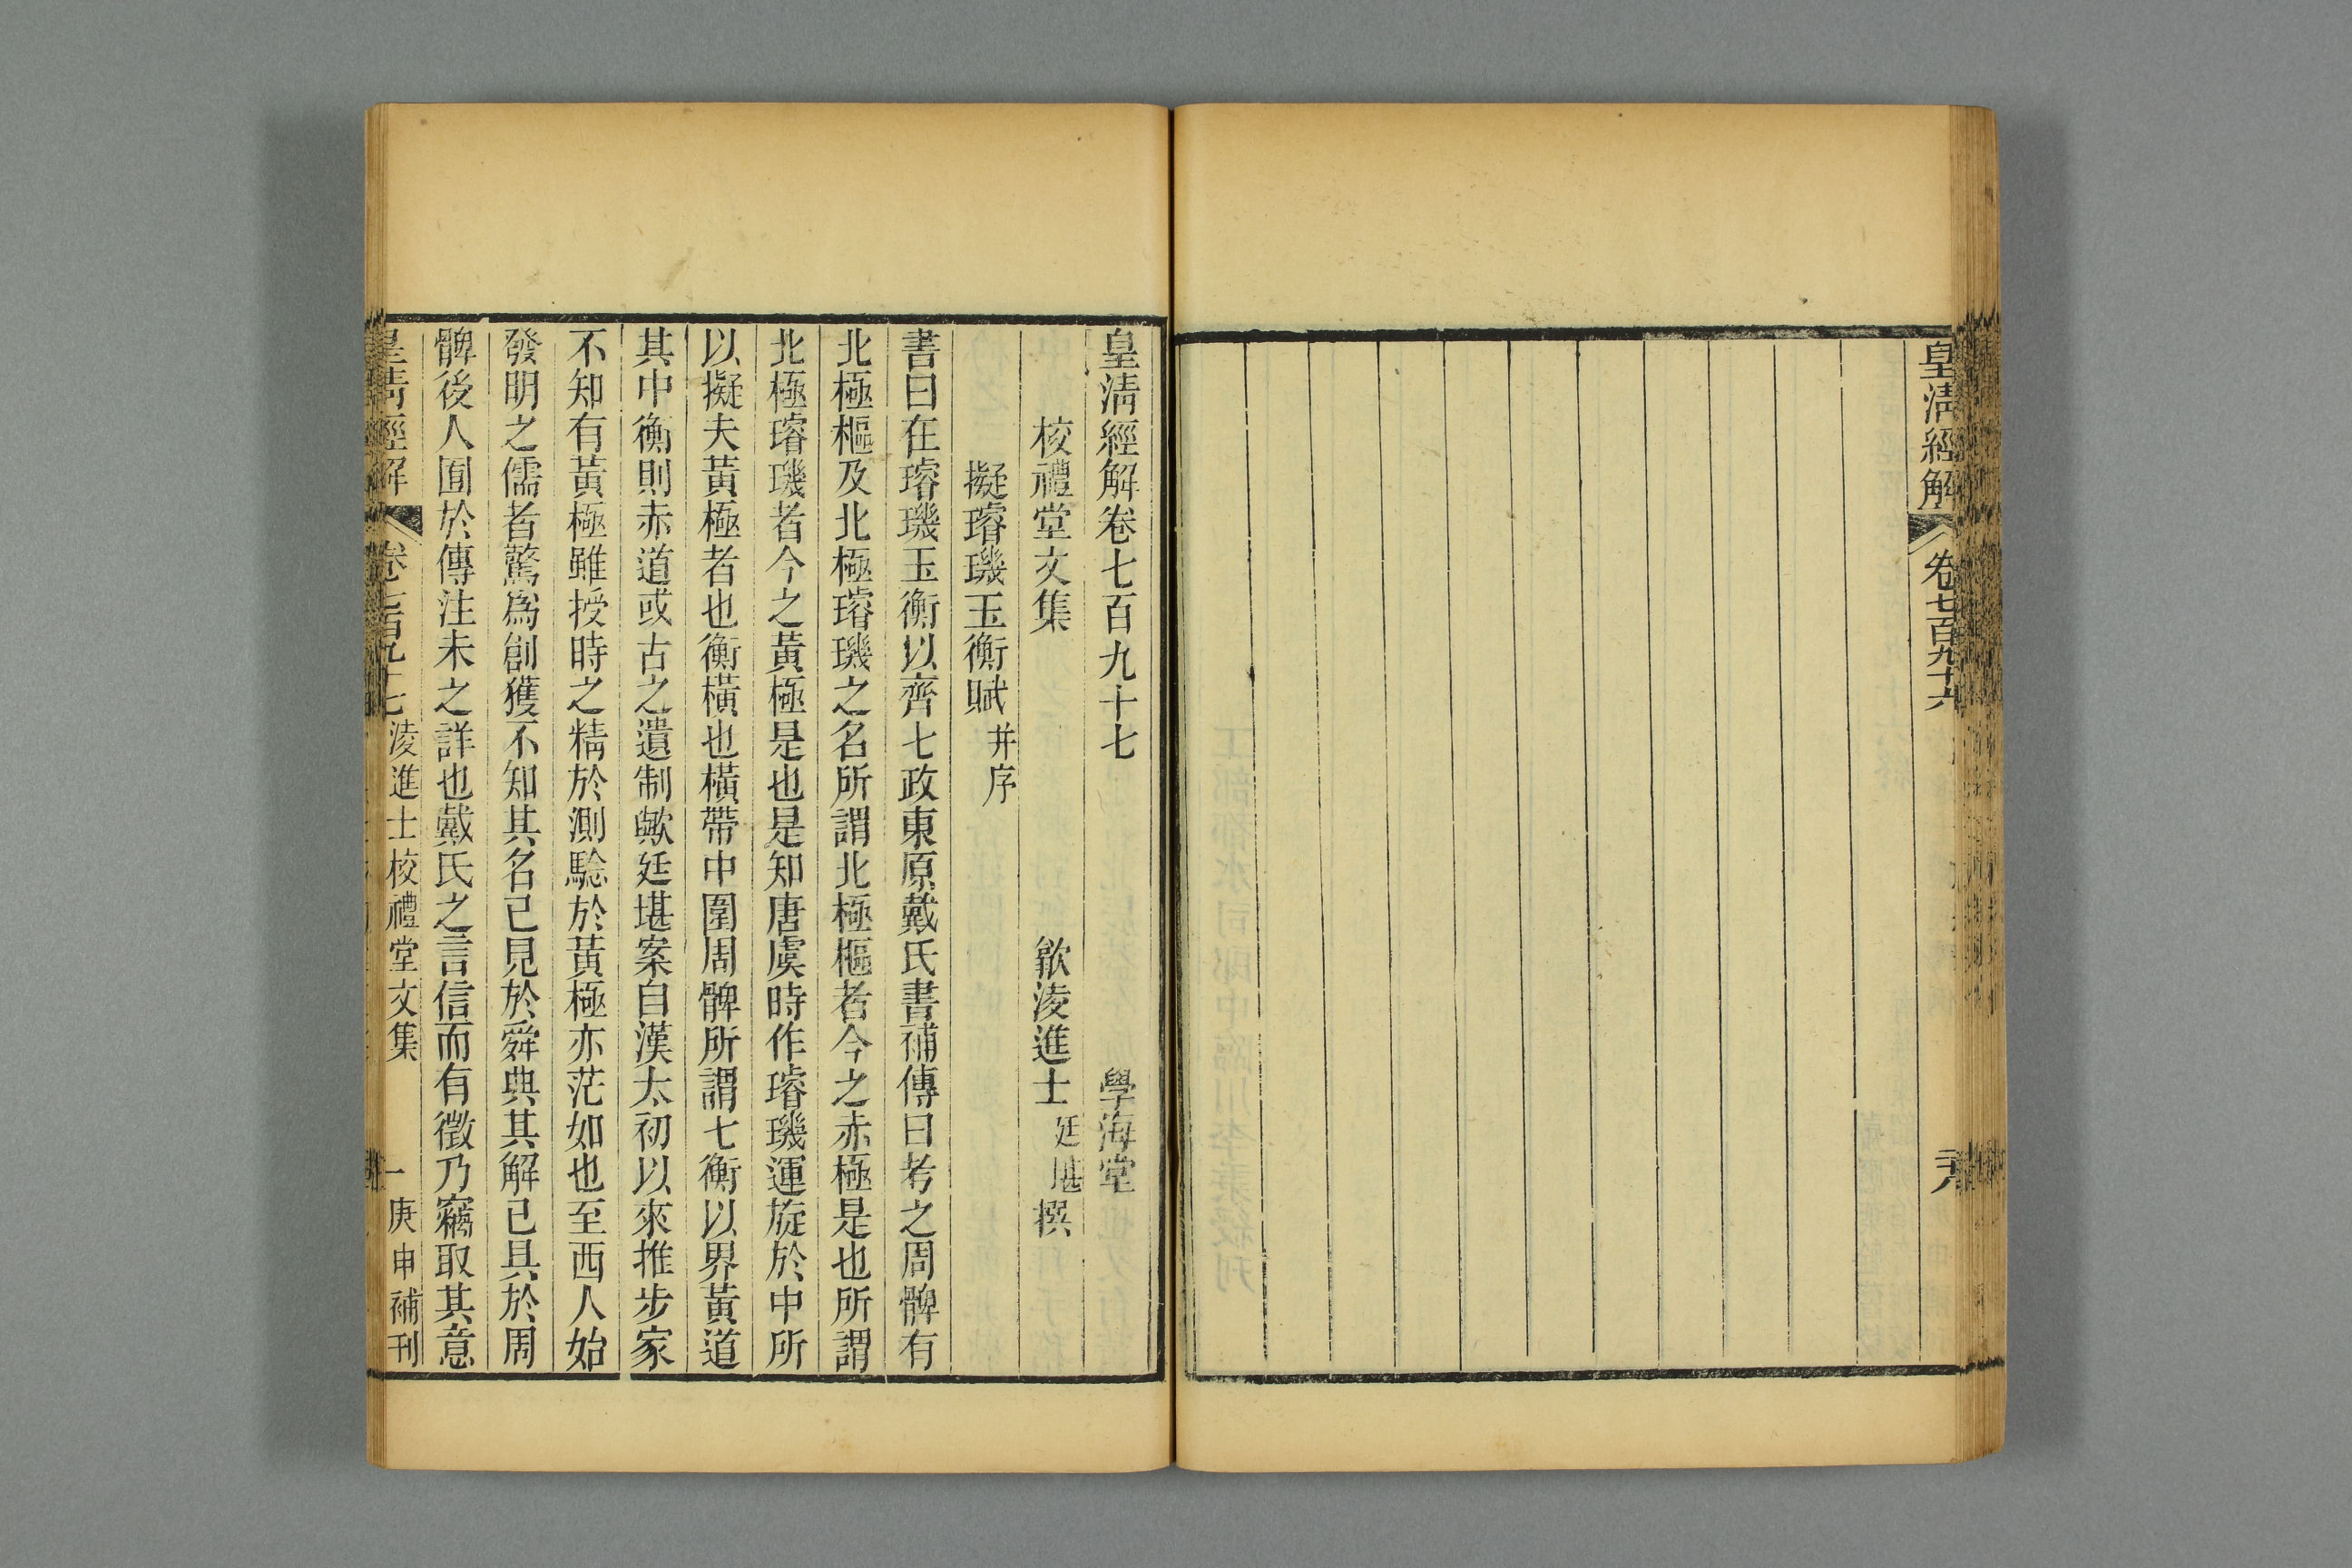 皇清經解
卷七百九十六
皇清經解卷七百九十七
學海堂
校禮堂文集
歙淩進士廷堪撰
擬璿璣玉衡賦并序
書曰在璿璣玉衡以齊七政東原戴氏書補傳曰考之周髀有
北極樞及北極璿璣之名所謂北極樞者今之赤極是也所謂
北極璿璣者今之黃極是也是知唐虞時作璿璣運旋於中所
以擬夫黃極者也衡橫也橫帶中圍周髀所謂七衡以界黃道
其中衡則赤道或古之遺制歟廷堪案自漢太初以來推步家
不知有黃極雖授時之精於測驗於黃極亦茫如也至西人始
發明之儒者驚為創獲不知其名已見於舜典其解已具於周
髀後人囿於傳注未之詳也戴氏之言信而有徵乃竊取其意
皇清經解
卷七百九十七
淩進士校禮堂文集
一
庚申補刊